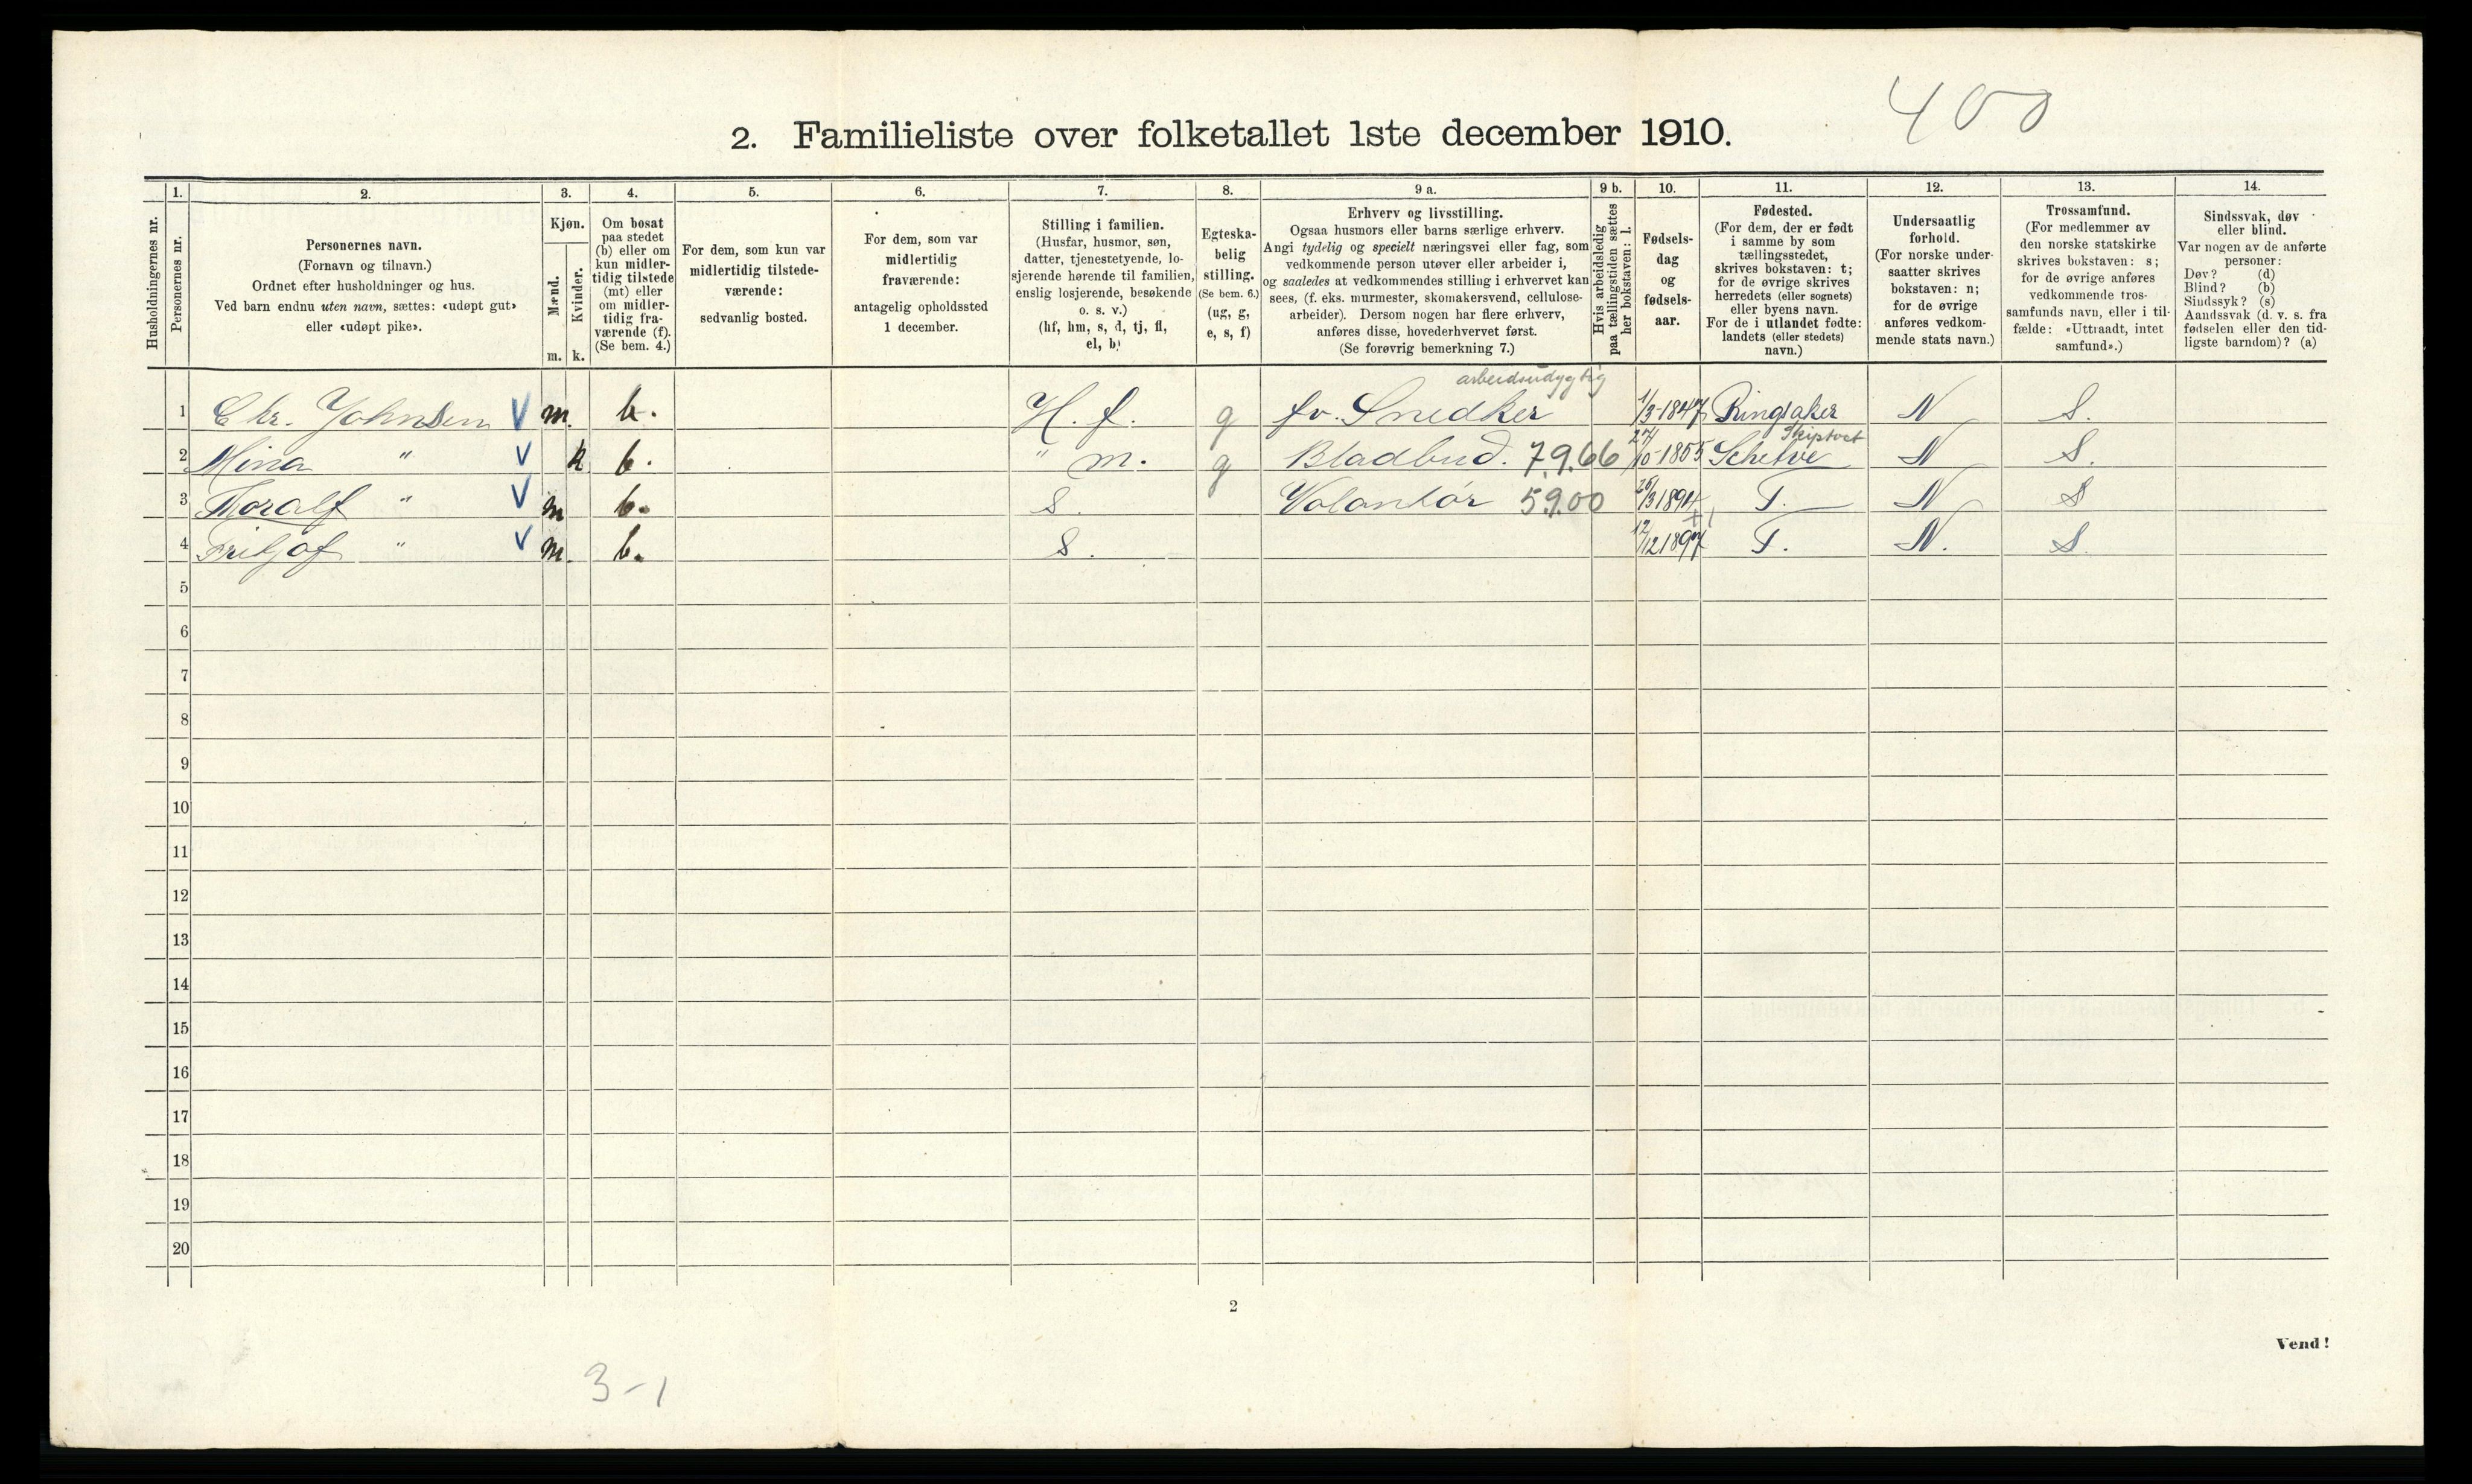 400
2. Familieliste over folketallet 1ste december 1910.
Husholdningernes nr.
1.
Personernes nr.
2.
Personernes navn.
(Fornavn og tilnavn.)
Ordnet efter husholdninger og hus.
Ved barn endnu uten navn, sættes: «udøpt gut»
eller «udøpt pike».
3.
Kjøn.
Mænd.
Kvinder.
m. k.
4.
Om bosat
paa stedet
(b) eller om
kun midler-
tidig tilstede
(mt) eller
om midler-
tidig fra-
værende (f).
(Se bem. 4.)
5.
For dem, som kun var
midlertidig tilstede-
værende:
sedvanlig bosted.
6.
For dem, som var
midlertidig
fraværende:
antagelig opholdssted
1 december.
7.
Stilling i familien.
(Husfar, husmor, søn,
datter, tjenestetyende, lo-
sjerende hørende til familien,
enslig losjerende, besøkende
o. s. v.)
(hf, hm, s, d, tj, fl,
el, b)
8.
Egteska-
belig
stilling.
(Se bem. 6.)
(ug, g,
e, s, f)
9 a.
Erhverv og livsstilling.
Ogsaa husmors eller barns særlige erhverv.
Angi tydelig og specielt næringsvei eller fag, som
vedkommende person utøver eller arbeider i,
og saaledes at vedkommendes stilling i erhvervet kan
sees, (f. eks. murmester, skomakersvend, cellulose-
arbeider). Dersom nogen har flere erhverv,
anføres disse, hovederhvervet først.
(Se forøvrig bemerkning 7.)
9 b.
Hvis arbeidsledig
paa tællingstiden sættes
her bokstaven: l.
10.
Fødsels-
dag
og
fødsels-
aar.
11.
Fødested.
(For dem, der er født
i samme by som
tællingsstedet,
skrives bokstaven: t;
for de øvrige skrives
herredets (eller sognets)
eller byens navn.
For de i utlandet fødte:
landets (eller stedets)
navn.)
12.
Undersaatlig
forhold.
(For norske under-
saatter skrives
bokstaven: n;
for de øvrige
anføres vedkom-
mende stats navn.)
13.
Trossamfund.
(For medlemmer av
den norske statskirke
skrives bokstaven: s;
for de øvrige anføres
vedkommende tros-
samfunds navn, eller i til-
fælde: «Uttraadt, intet
samfund».)
14.
Sindssvak, døv
eller blind.
Var nogen av de anførte
personer:
Døv? (d)
Blind? (b)
Sindssyk? (s)
Aandssvak (d. v. s. fra
fødselen eller den tid-
ligste barndom)? (a)
arbeidsudygtig
1 Chr. Johnsen V m. b. H. f. g fv. Snedker 1/3-1847 Ringsaker N S.
Skiptvet
2 Mina " V k b. " m. g Bladbud. 7.9.66 27/10-1855 N S.
3 Thoralf " V m b. S. Volontör 59.00 1894 T. N S
4 Fritjof " V m. b. S. 12/12 1897 T. N. S.
5
6
7
8
9
10
11
12
13
14
15
16
17
18
19
20
2
Vend!
3-1